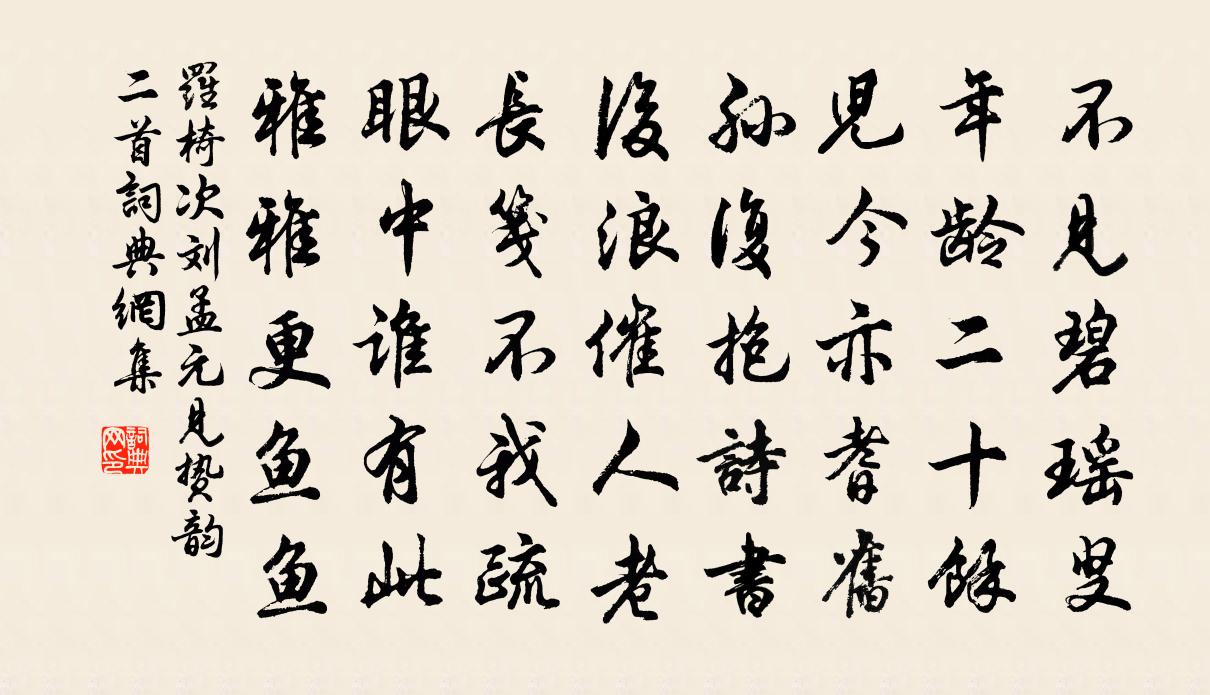 不見碧瑶叟
年龄二十餘
兒今亦耆舊
孙復抱詩書
後浪催人老
長箋不我疏
眼中谁有此
雅雅更鱼鱼
羅椅次刘孟元見贽韵
二首詞典網集
詞典网印